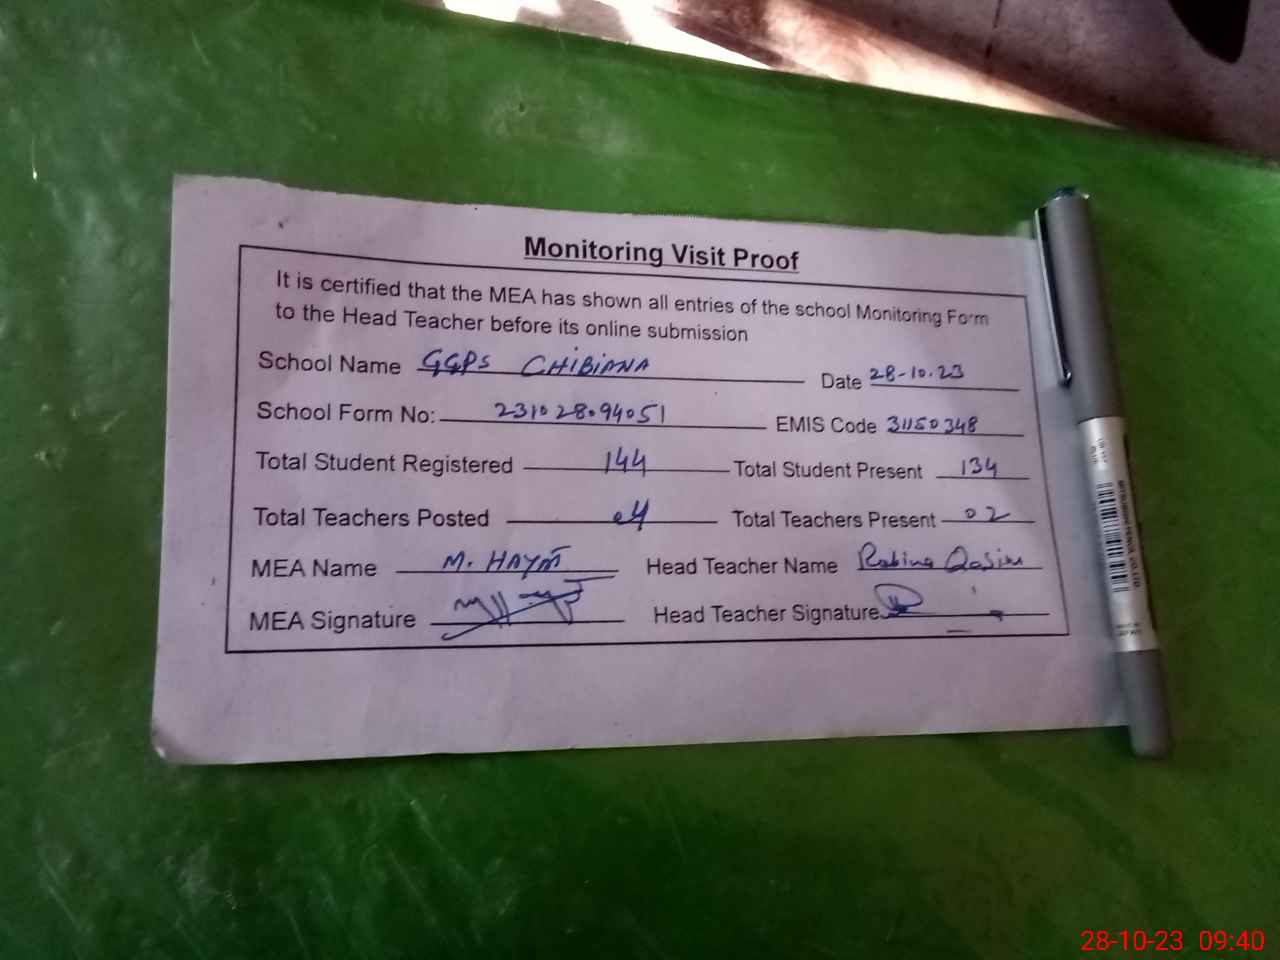 Monitoring Visit Proof
It is certified that the MEA has shown all entries of the school Monitoring Form
to the Head Teacher before its online submission
School Name GGPS CHIBIANA Date 28-10.23
School Form No: 231028094051 EMIS Code 31150348
Total Student Registered 144 Total Student Present 134
Total Teachers Posted 04 Total Teachers Present 02
MEA Name M. HAYAT Head Teacher Name Robina Qasim
MEA Signature Head Teacher Signature
MITSUBISHI PENCIL CO.,LTD.
28-10-23 09:40